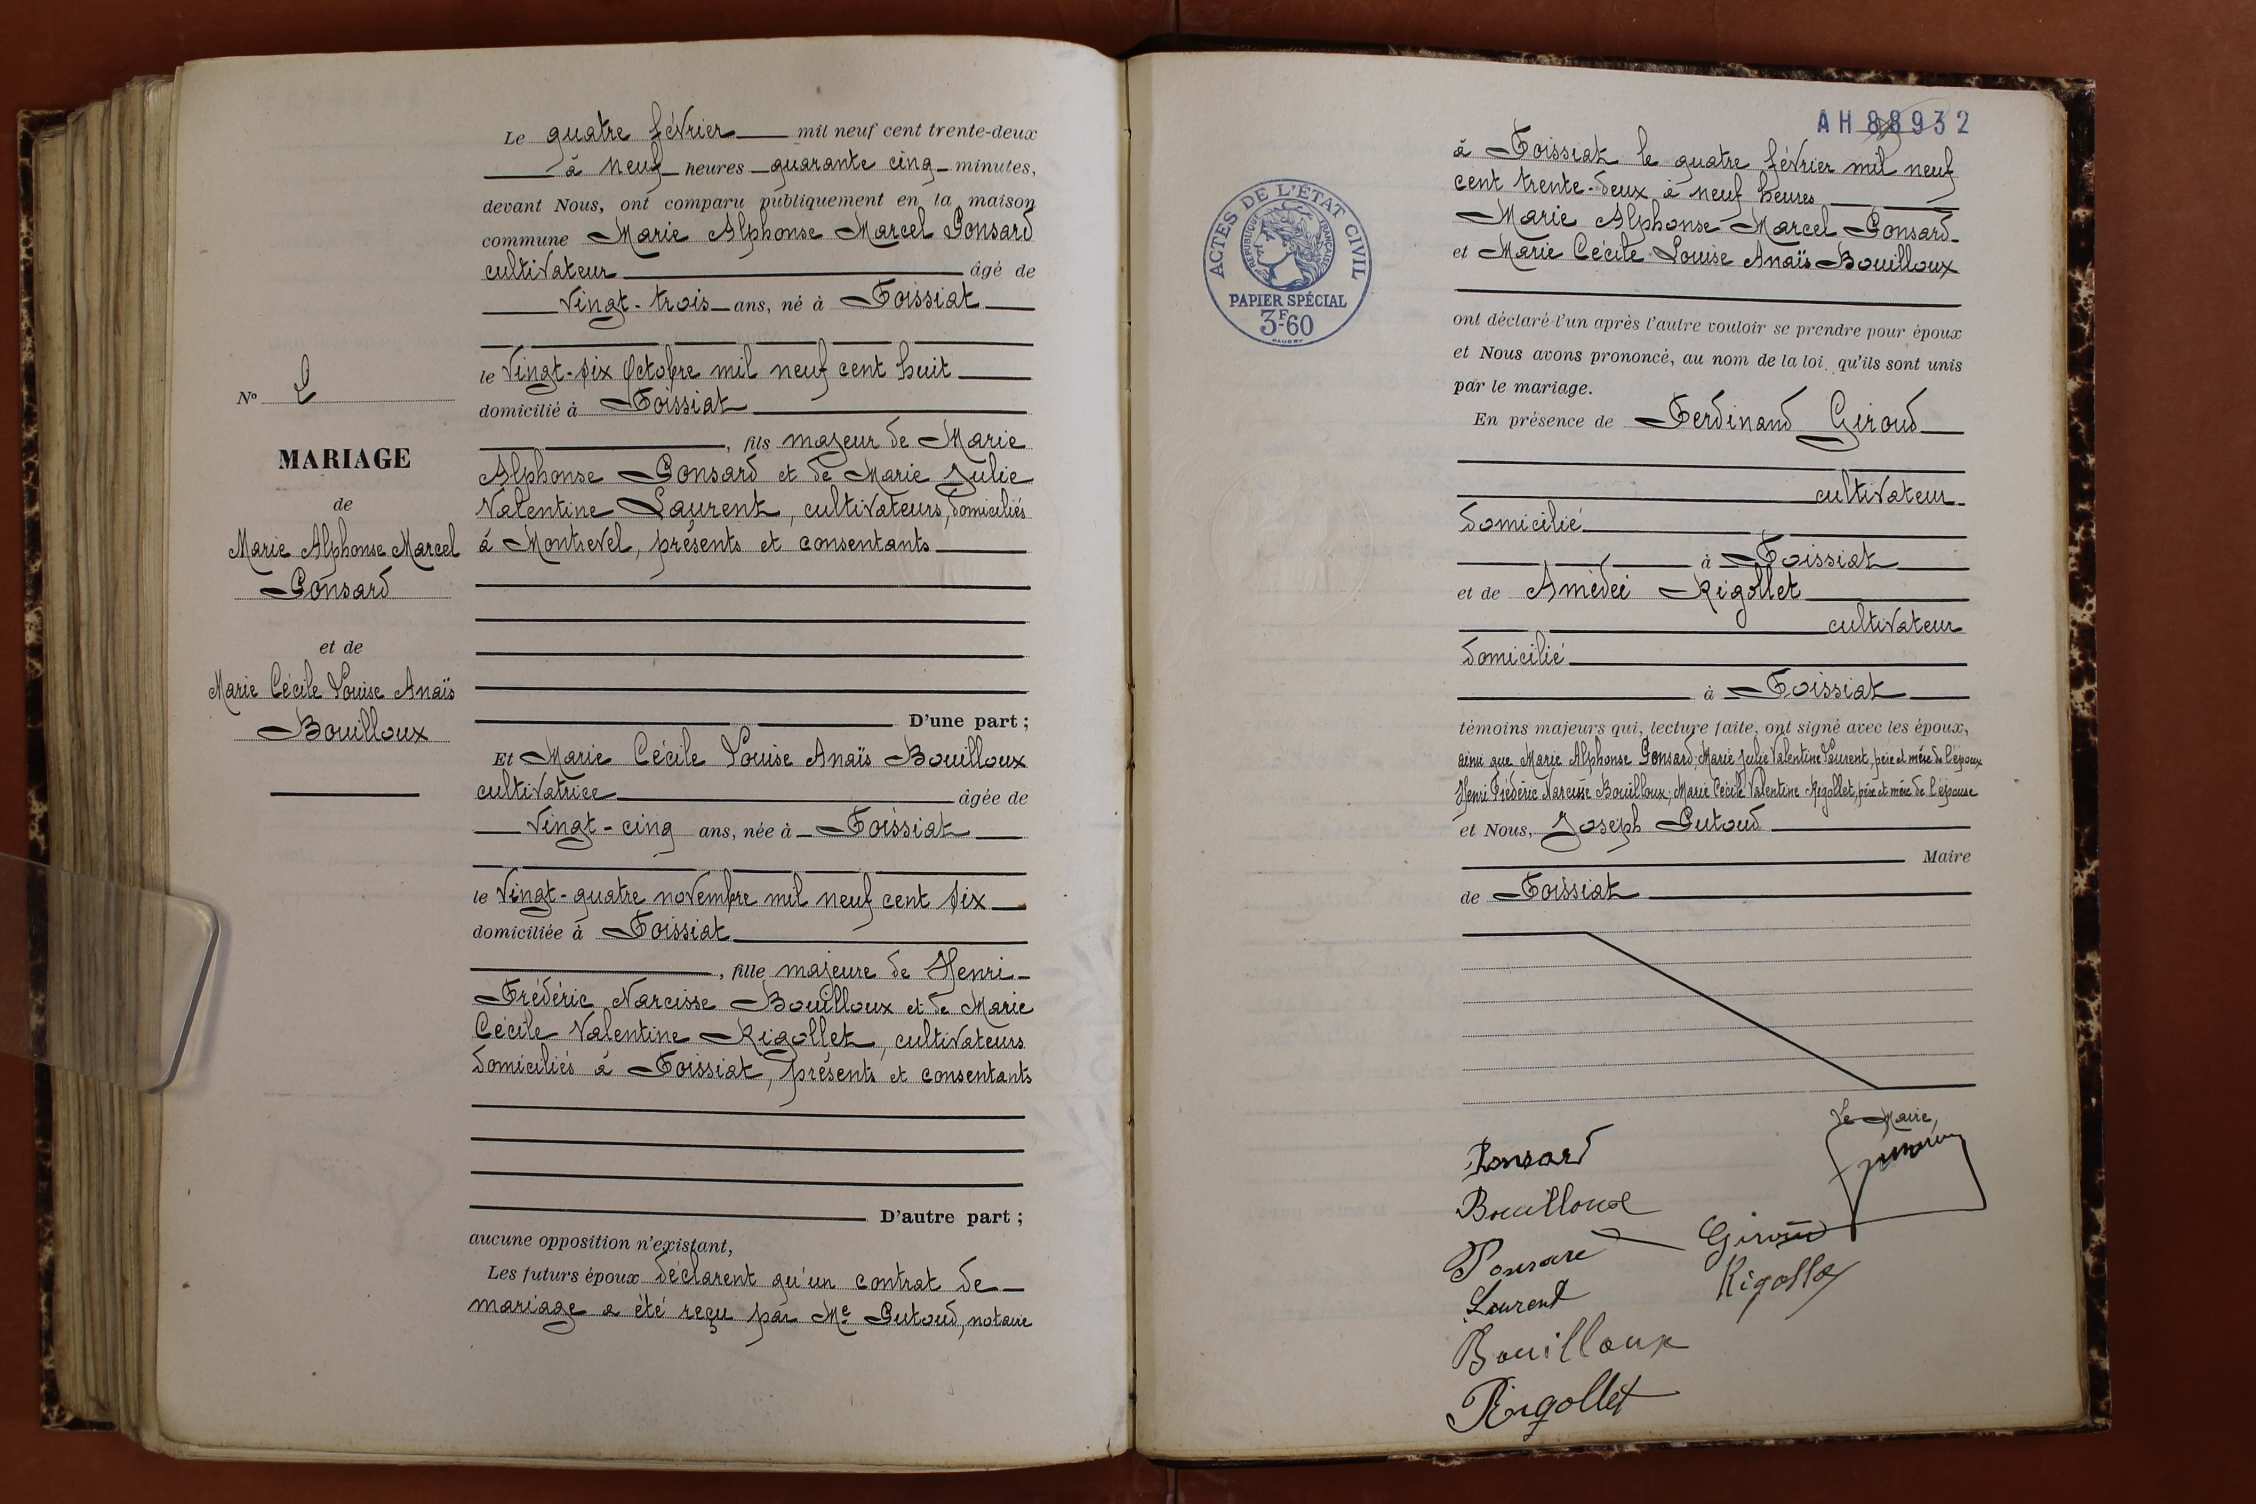 Le quatre février mil neuf cent trente-deux
à neuf heures quarante cinq minutes,
devant Nous, ont comparu publiquement en la maison
commune Marie Alphonse Marcel Ponsard
cultivateur âgé de
vingt-trois ans, né à Foissiat
le vingt-six Octobre mil neuf cent huit
domicilié à Foissiat
, fils majeur de Marie
Alphonse Ponsard et de Marie Julie
Valentine Laurent, cultivateurs, domiciliés
à Montrevel, présents et consentants
D'une part ;
Et Marie Cécile Louise Anaïs Bouilloux
cultivatrice âgée de
vingt-cinq ans, née à Foissiat
le vingt-quatre novembre mil neuf cent six
domiciliée à Foissiat
, fille majeure de Henri
Frédéric Narcisse Bouilloux et de Marie
Cécile Valentine Rigollet, cultivateurs
domiciliés à Foissiat, présents et consentants
D'autre part ;
aucune opposition n'existant,
Les futurs époux déclarent qu'un contrat de
mariage a été reçu par Me Putoud, notaire
No 2
MARIAGE
de
Marie Alphonse Marcel
Ponsard
et de
Marie Cécile Louise Anaïs
Bouilloux
AH 88932
ACTES DE L'ÉTAT CIVIL
RÉPUBLIQUE FRANÇAISE
PAPIER SPÉCIAL
3F60
à Foissiat le quatre février mil neuf
cent trente-deux à neuf heures
Marie Alphonse Marcel Ponsard
et Marie Cécile Louise Anaïs Bouilloux
ont déclaré l'un après l'autre vouloir se prendre pour époux
et Nous avons prononcé, au nom de la loi, qu'ils sont unis
par le mariage.
En présence de Ferdinand Giroud
cultivateur
domicilié
à Foissiat
et de Amédéé Rigollet
cultivateur
domicilié
à Foissiat
témoins majeurs qui, lecture faite, ont signé avec les époux,
ainsi que Marie Alphonse Ponsard, Marie Julie Valentine Laurent, père et mère de l'époux
Henri Frédéric Narcisse Bouilloux, Marie Cécile Valentine Rigollet, père et mère de l'épouse
et Nous, Joseph Putoud
Maire
de Foissiat
Le Maire,
Ponsard
Bouilloux
Ponsard
Giroud
Laurent
Rigollet
Bouilloux
Rigollet